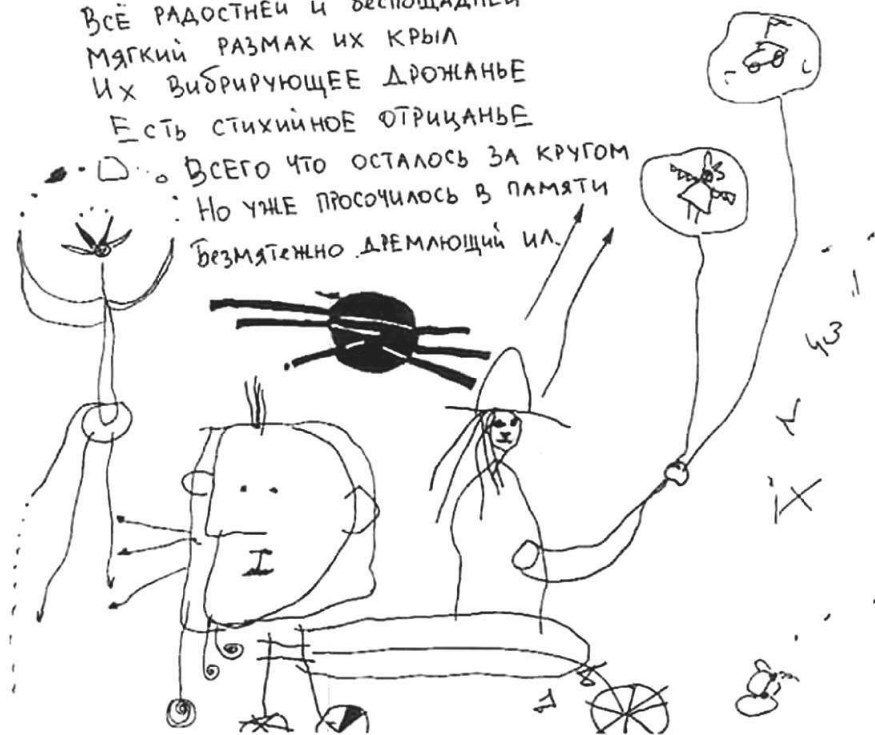 ВСЁ РАДОСТНЕЙ И БЕСПОЩАДНЕЙ
МЯГКИЙ РАЗМАХ ИХ КРЫЛ
ИХ ВИБРИРУЮЩЕЕ ДРОЖАНЬЕ
ЕСТЬ СТИХИЙНОЕ ОТРИЦАНЬЕ
ВСЕГО ЧТО ОСТАЛОСЬ ЗА КРУГОМ
НО УЖЕ ПРОСОЧИЛОСЬ В ПАМЯТИ
БЕЗМЯТЕЖНО ДРЕМЛЮЩИЙ ИЛ.